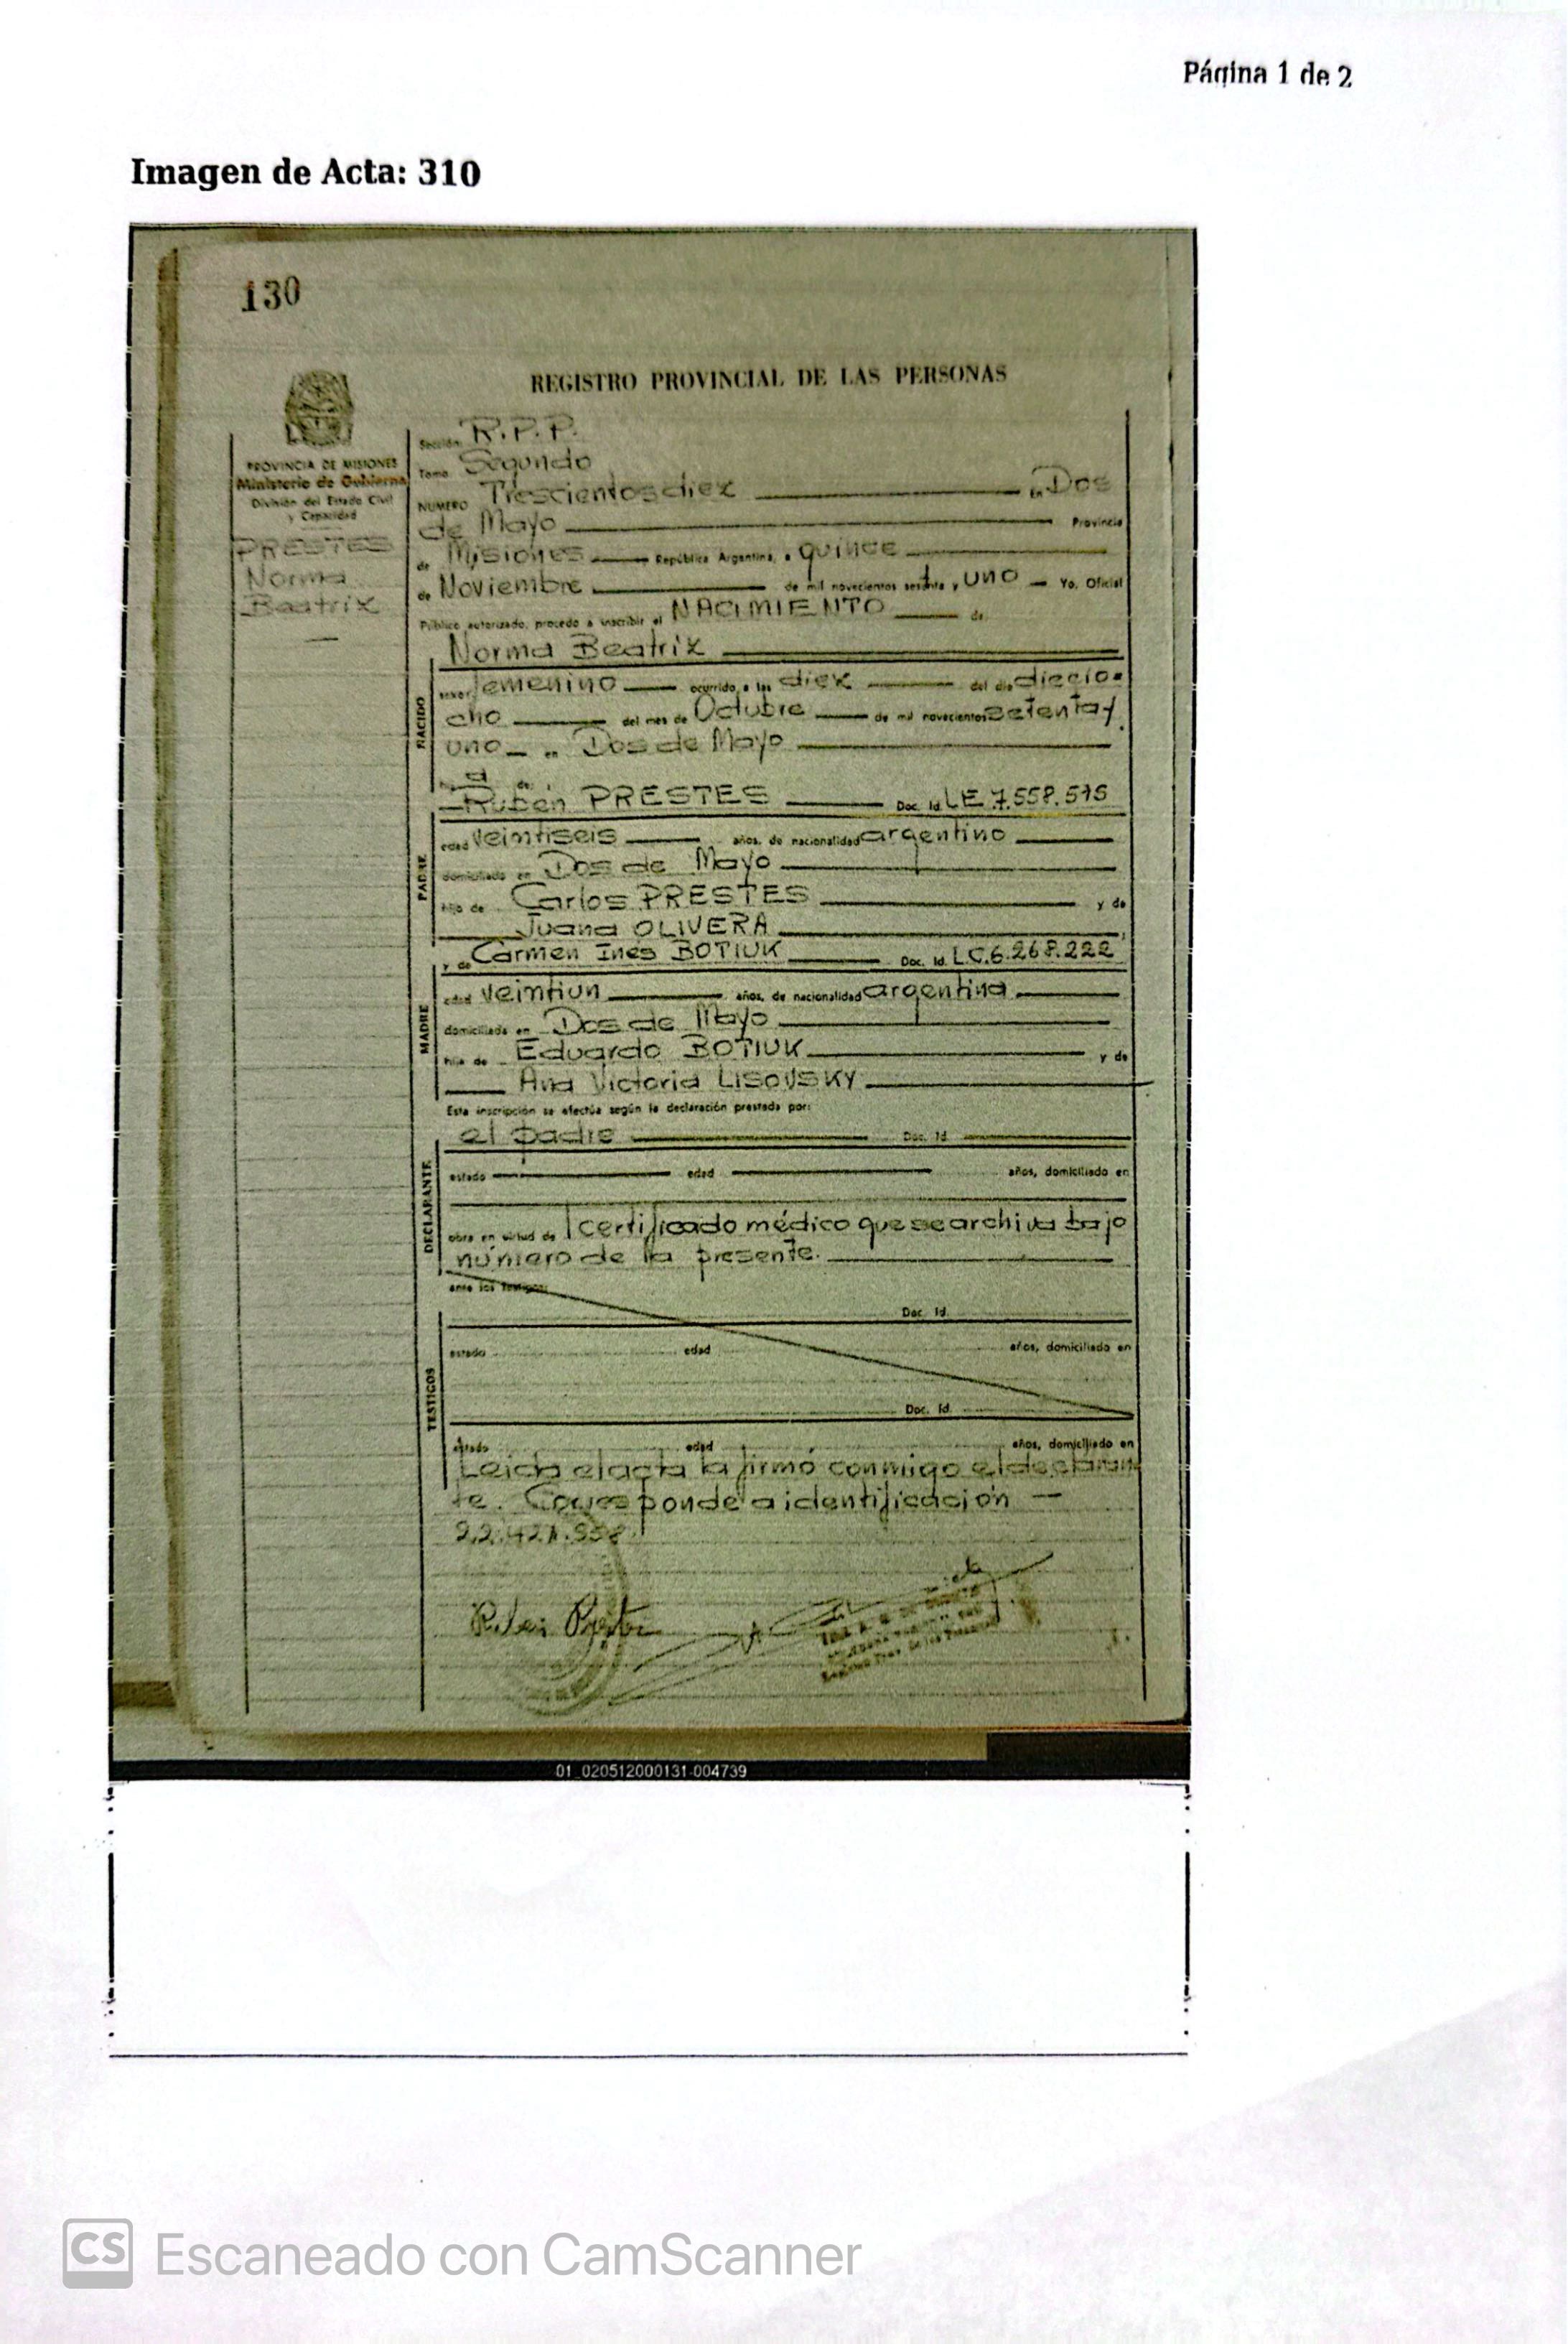 Página 1 de 2
Imagen de Acta: 310
130
REGISTRO PROVINCIAL DE LAS PERSONAS
PROVINCIA DE MISIONES
Ministerio de Gobierno
División del Estado Civil
y Capacidad
PRESTES
Norma
Beatrix
Sección R.P.P.
Tomo Segundo
NUMERO Trescientos diez en Dos
de Mayo Provincia
de Misiones República Argentina, a quince
de Noviembre de mil novecientos setenta y uno Yo, Oficial
Público autorizado, procedo a inscribir el NACIMIENTO de
Norma Beatrix
NACIDO
sexo femenino ocurrido a las diez del día diecio-
cho del mes de Octubre de mil novecientos setenta y
uno en Dos de Mayo
a de
Rubén PRESTES Doc. Id. LE 7.558.515
PADRE
edad veintiseis años, de nacionalidad argentino
domiciliado en Dos de Mayo
hijo de Carlos PRESTES y de
Juana OLIVERA
y de Carmen Inés BOTIUK Doc. Id. L.C.6.268.222
MADRE
edad veintiun años, de nacionalidad argentina
domiciliada en Dos de Mayo
hija de Eduardo BOTIUK y de
Ana Victoria LISOVSKY
Esta inscripción se efectúa según la declaración prestada por:
el padre Doc. Id.
DECLARANTE
estado edad años, domiciliado en
obra en virtud de l certificado médico que se archiva bajo
número de la presente.
ante los testigos:
Doc. Id.
TESTIGOS
estado edad años, domiciliado en
Doc. Id.
estado edad años, domiciliado en
Leida el acta la firmó conmigo el declaran
te. Corresponde a identificación
22.421.958
01_020512000131-004739
CS Escaneado con CamScanner